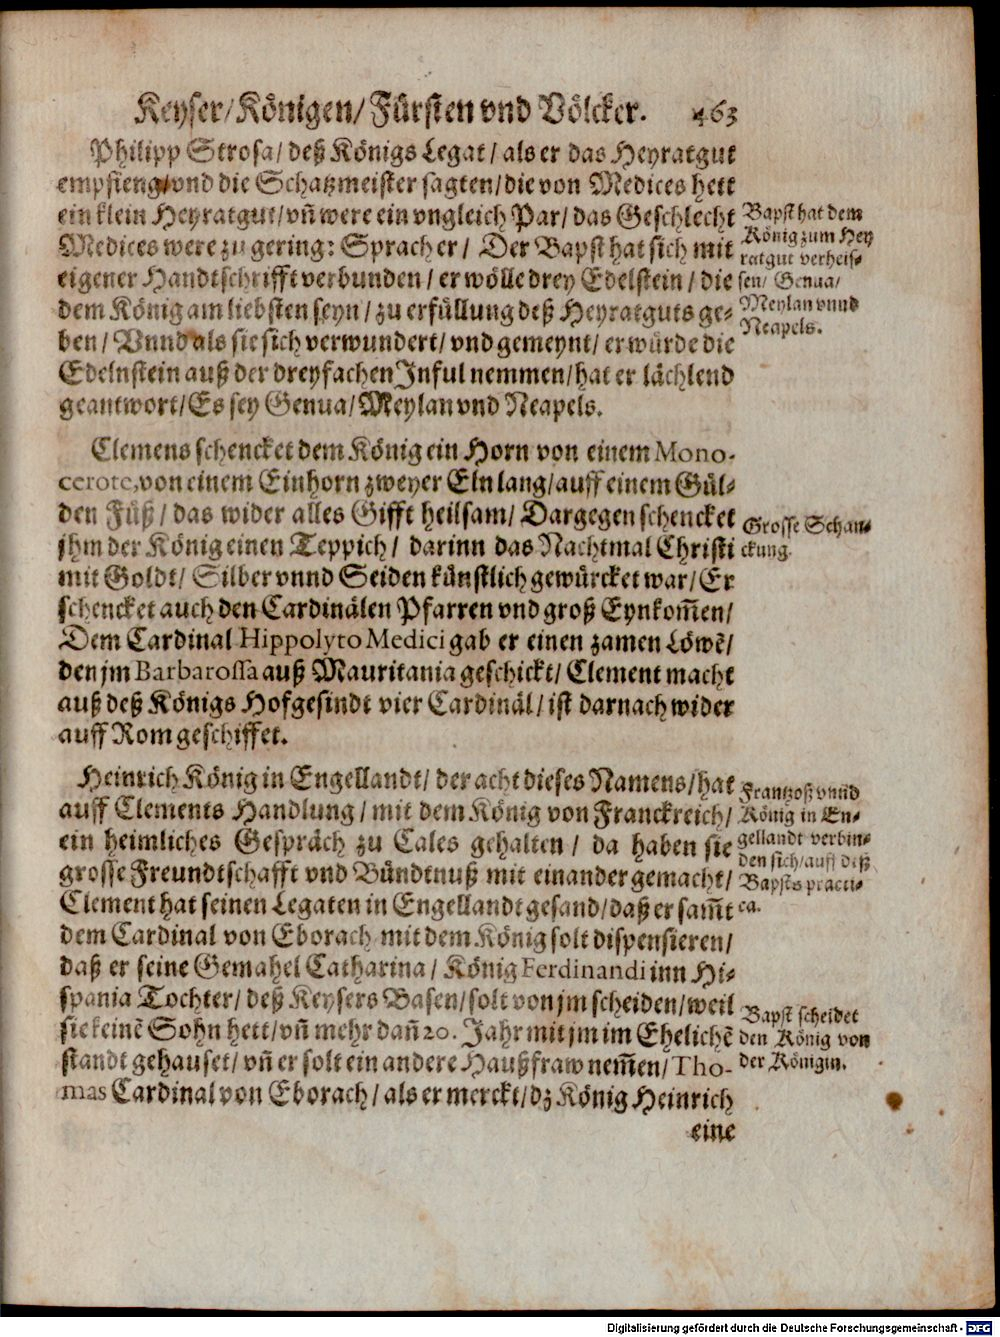 Keyser/ Königen/ Fürsten vnd Völcker. 463
Philipp Strosa/ deß Königs Legat/ als er das Heyratgut
empfieng/ vnd die Schatzmeister sagten/ die von Medices hett
ein klein Heyratgut/ vñ were ein vngleich Par/ das Geschlecht
Medices were zu gering: Sprach er/ Der Bapst hat sich mit
eigener Handtschrifft verbunden/ er wölle drey Edelstein/ die
dem König am liebsten seyn/ zu erfüllung deß Heyratguts ge-
ben/ Vnnd als sie sich verwundert/ vnd gemeynt/ er würde die
Edelnstein auß der dreyfachen Inful nemmen/ hat er lächlend
geantwort/ Es sey Genua/ Meylan vnd Neapels.
Bapst hat dem
König zum Hey
ratgut verheis-
sen/ Genua/
Meylan vnnd
Neapels.
Clemens schencket dem König ein Horn von einem Mono-
cerote, von einem Einhorn zweyer Eln lang/ auff einem Gül-
den Füß/ das wider alles Gifft heilsam/ Dargegen schencket
jhm der König einen Teppich/ darinn das Nachtmal Christi
mit Goldt/ Silber vnnd Seiden künstlich gewürcket war/ Er
schencket auch den Cardinälen Pfarren vnd groß Eynkom̃en/
Dem Cardinal Hippolyto Medici gab er einen zamen Löwẽ/
den jm Barbarossa auß Mauritania geschickt/ Clement macht
auß deß Königs Hofgesindt vier Cardinäl/ ist darnach wider
auff Rom geschiffet.
Grosse Schan-
ckung.
Heinrich König in Engellandt/ der acht dieses Namens/ hat
auff Clements Handlung/ mit dem König von Franckreich/
ein heimliches Gespräch zu Cales gehalten/ da haben sie
grosse Freundtschafft vnd Bündtnuß mit einander gemacht/
Clement hat seinen Legaten in Engellandt gesand/ daß er sam̃t
dem Cardinal von Eborach mit dem König solt dispensieren/
daß er seine Gemahel Catharina/ König Ferdinandi inn Hi-
spania Tochter/ deß Keysers Basen/ solt von jm scheiden/ weil
sie keinẽ Sohn hett/ vñ mehr dañ 20. Jahr mit jm im Ehelichẽ
standt gehauset/ vñ er solt ein andere Haußfraw nem̃en/ Tho-
mas Cardinal von Eborach/ als er merckt/ dz König Heinrich
Frantzoß vnnd
König in En-
gellandt verbin-
den sich/ auff deß
Bapsts practi-
ca.
Bapst scheidet
den König von
der Königin.
eine
Digitalisierung gefördert durch die Deutsche Forschungsgemeinschaft - DFG